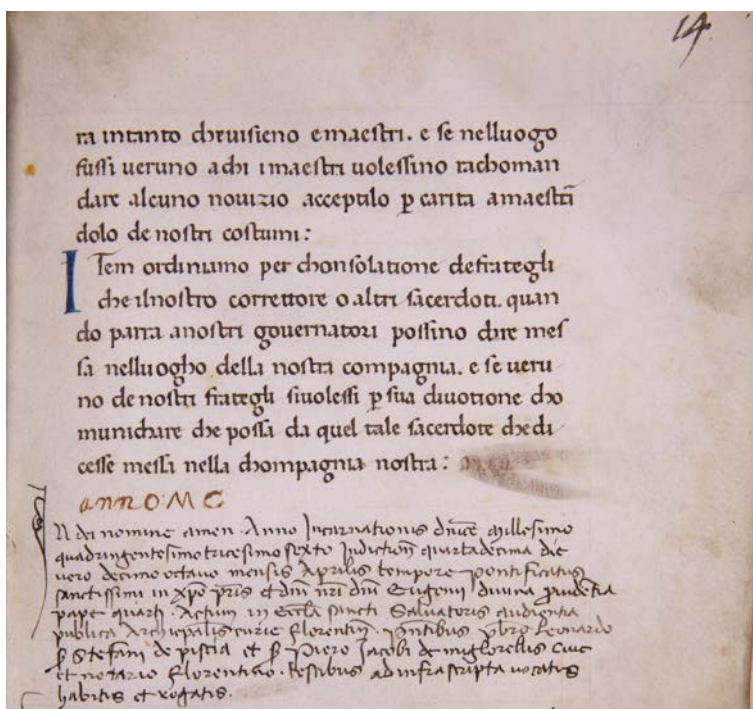 14
ra intanto chevisieno emaestri. e se nelluogo
fussi veruno a chi i maestri volessino rachoman
dare alcuno novizio acceptilo p carita amaestrā
dolo de nostri costumi :
ITem ordiniamo per chonsolatione defrategli
che ilnostro correttore o altri sacerdoti. quan
do parra anostri governatori possino dire mes
sa nelluogho della nostra compagnia. e se veru
no de nostri frategli sivolessi p sua divotione cho
munichare che possa da quel tale sacerdote che di
cesse messa nella chompagnia nostra :
anno. M C
IN dei nomine amen. Anno Incarnationis dnice Millesimo
quadringentesimo tricesimo sexto Indictione quartadecima die
vero decimo octavo mensis Aprilis tempore pontificatus
sanctissimi in xpo pris et dni nri dni Eugenii divina providentia
pape quarti. Actum in Eccla sancti Salvatoris audientia
publica Archiepalis curie florentin. pntibus pbro Leonardo
Stefani de piscia et Piero Jacobi de miglorellis cive
et notario florentino. testibus ad infrascripta vocatis
habitis et rogatis.